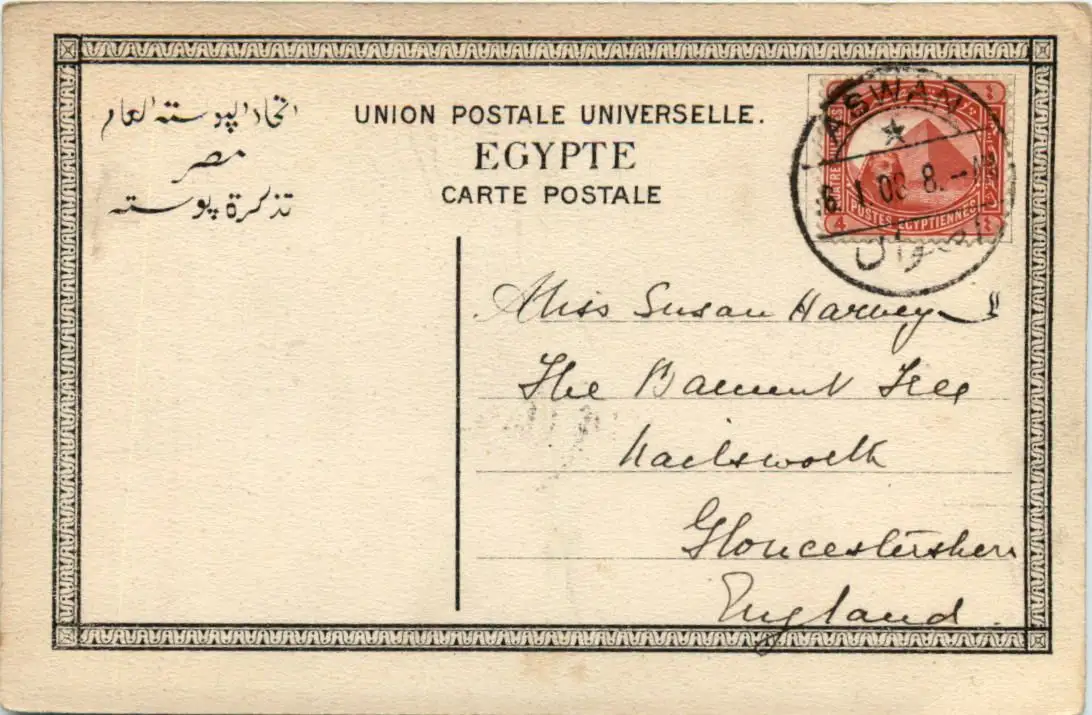 اتحاد الپوسته العام
مصر
تذكرة پوسته
UNION POSTALE UNIVERSELLE.
EGYPTE
CARTE POSTALE
ASWAN
6. I. 06 8.
POSTES EGYPTIENNES
4 ٤
اصوان
Miss Susan Harvey
The Tree
Nailsworth
Gloucestershire
England.